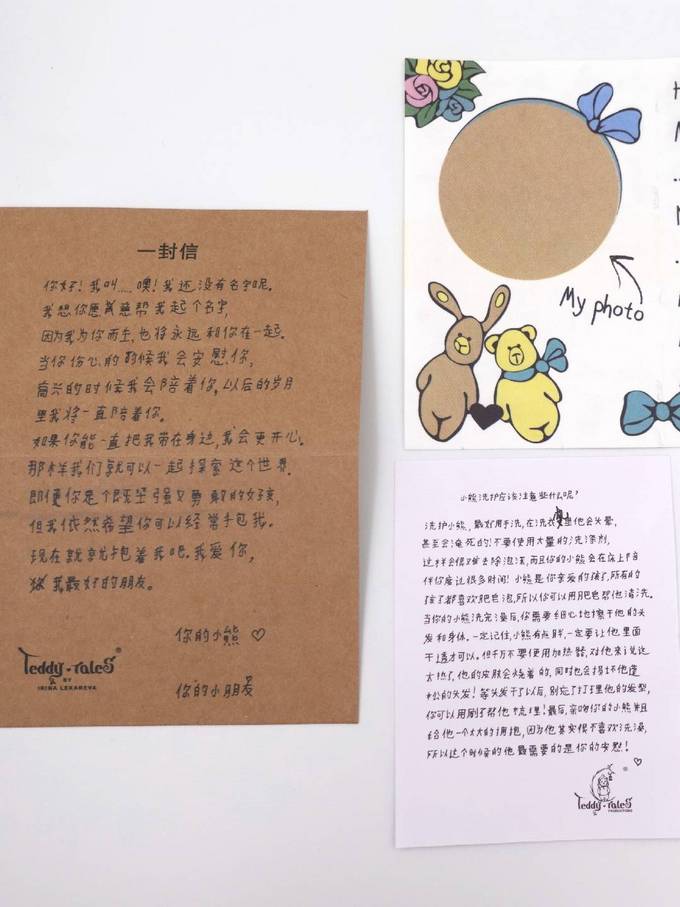 一封信
你好！我叫.....噢！我还没有名字呢。
我想你愿意帮我起个名字，
因为我为你而生，也将永远和你在一起。
当你伤心的时候我会安慰你，
高兴的时候我会陪着你，以后的岁月
里我将一直陪着你。
如果你能一直把我带在身边，我会更开心。
那样我们就可以一起探索这个世界.
即便你是个既坚强又勇敢的女孩，
但我依然希望你可以经常抱抱我。
现在就抱着我吧.我爱你，
我最好的朋友。
你的小熊 ♡
你的小朋友
Teddy-Tales®
BY
IRINA LEKAREVA
My photo
小熊洗护应该注意些什么呢？
洗护小熊，最好用手洗，在洗衣里他会头晕，
甚至会淹死的！不要使用大量的洗涤剂，
这样会很难去除泡沫，而且你的小熊会在床上陪
伴你度过很多时间！小熊是你亲爱的孩子，所有的
孩子都喜欢肥皂泡，所以你可以用肥皂帮他清洗.
当你的小熊洗完澡后，你需要细心地擦干他的头
发和身体。一定记住，小熊有点胖，一定要让他里面
干透才可以。但千万不要使用加热器，对他来说这
太热了，他的皮肤会烧着的，同时也会损坏他蓬
松的头发！等头发干了以后，别忘了打理他的发型，
你可以用刷子帮他梳理！最后，亲吻你的小熊并且
给他一个大大的拥抱，因为他其实很不喜欢洗澡，
所以这个时候的他最需要的是你的安慰！
♡
Teddy-Tales®